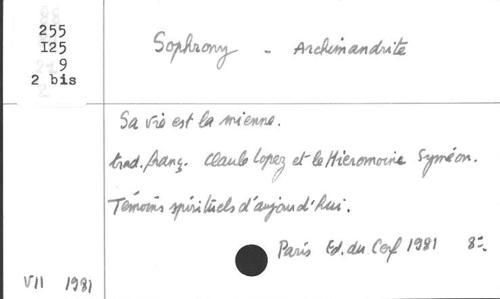 255
I25
9
2 bis
Sophrony - Archimandrite
Sa vie est la mienne.
trad. franç. Claude Lopez et le Hieromoine Syméon.
Témoins spirituels d'aujourd'hui.
Paris Ed. du Cerf 1981 8°-
VII 1981